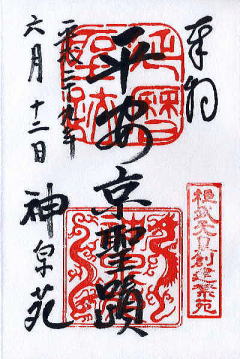 奉拝
平安京聖蹟
桓武天皇創建禁苑
平成二十九年
六月十二日
神泉苑